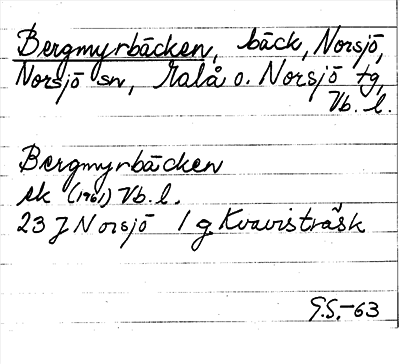 Bergmyrbäcken, bäck, Norsjö,
Norsjö sn, Malå o. Norsjö tg,
Vb. l.
Bergmyrbäcken
ek (1961) Vb. l.
23 J Norsjö 1 g Kvavisträsk
G.S.-63